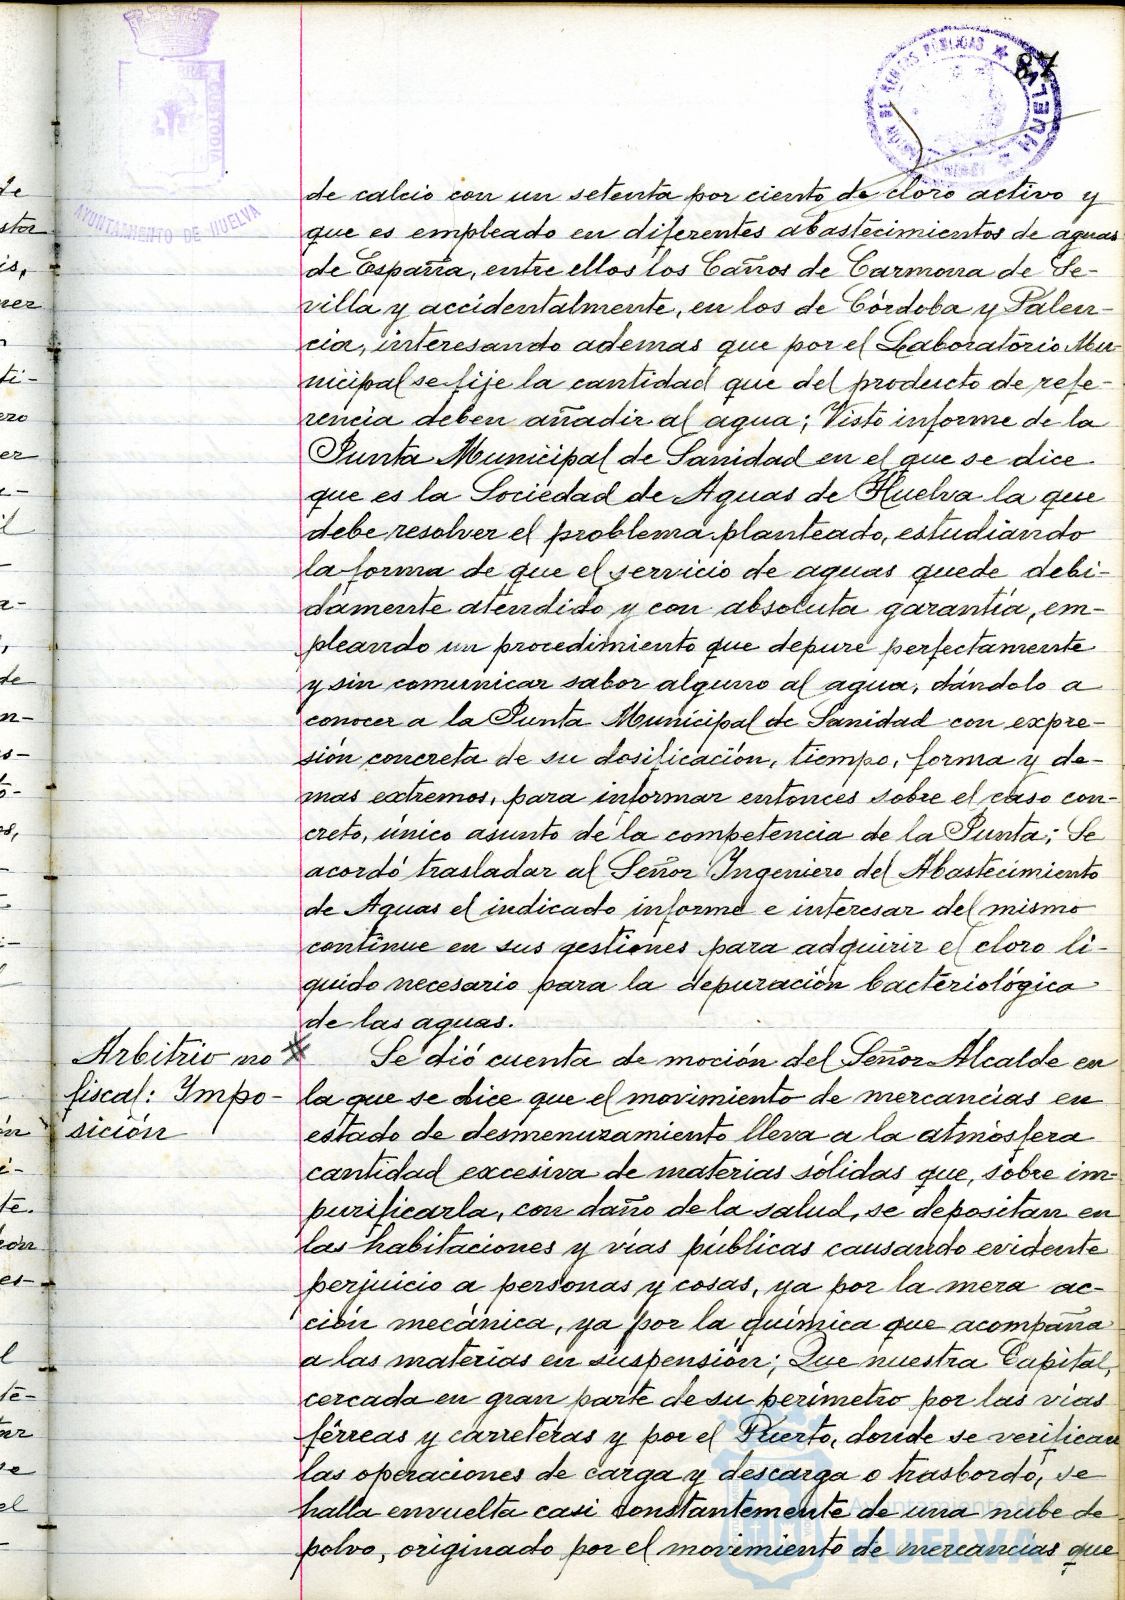 87
AYUNTAMIENTO DE HUELVA
CUSTODIA
HUELVA
de calcio con un setenta por ciento de cloro activo y
que es empleado en diferentes abastecimientos de aguas
de España, entre ellos los Caños de Carmona de Se-
villa y accidentalmente, en los de Córdoba y Palen-
cia, interesando ademas que por el Laboratorio Mu-
nicipal se fije la cantidad que del producto de refe-
rencia deben añadir al agua; Visto informe de la
Junta Municipal de Sanidad en el que se dice
que es la Sociedad de Aguas de Huelva la que
debe resolver el problema planteado, estudiando
la forma de que el servicio de aguas quede debi-
damente atendido y con absoluta garantía, em-
pleando un procedimiento que depure perfectamente
y sin comunicar sabor alguno al agua, dándolo a
conocer a la Junta Municipal de Sanidad con expre-
sión concreta de su dosificación, tiempo, forma y de-
mas extremos, para informar entonces sobre el caso con-
creto, único asunto de la competencia de la Junta; Se
acordó trasladar al Señor Ingeniero del Abastecimiento
de Aguas el indicado informe e interesar del mismo
continue en sus gestiones para adquirir el cloro lí-
quido necesario para la depuración bacteriológica
de las aguas.
Arbitrio no
fiscal: Impo-
sición
Se dió cuenta de moción del Señor Alcalde en
la que se dice que el movimiento de mercancías en
estado de desmenuzamiento lleva a la atmósfera
cantidad excesiva de materias sólidas que, sobre im-
purificarla, con daño de la salud, se depositan en
las habitaciones y vías públicas causando evidente
perjuicio a personas y cosas, ya por la mera ac-
ción mecánica, ya por la química que acompaña
a las materias en suspensión; Que nuestra Capital,
cercada en gran parte de su perímetro por las vías
férreas y carreteras y por el Puerto, donde se verifican
las operaciones de carga y descarga o trasbordo, se
halla envuelta casi constantemente de una nube de
polvo, originado por el movimiento de mercancías que
Ayuntamiento de
HUELVA